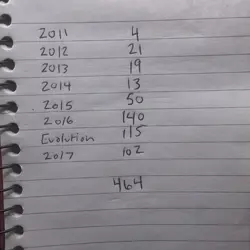 2011 4
2012 21
2013 19
2014 13
2015 50
2016 140
Evolution 115
2017 102
464